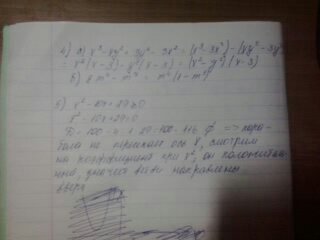 4) а) x³-xy²+3y²-3x² = (x³-3x²)-(xy²-3y²)
= x²(x-3)-y²(x-3) = (x²-y²)(x-3)
б)
5) x²-10x+29≥0
x²-10x+29=0
D=100-4·1·29=100-116 ∅ => пара-
бола не пересекает ось x, смотрим
на коэффициент при x², он положител
значит ветви направлены
вверх